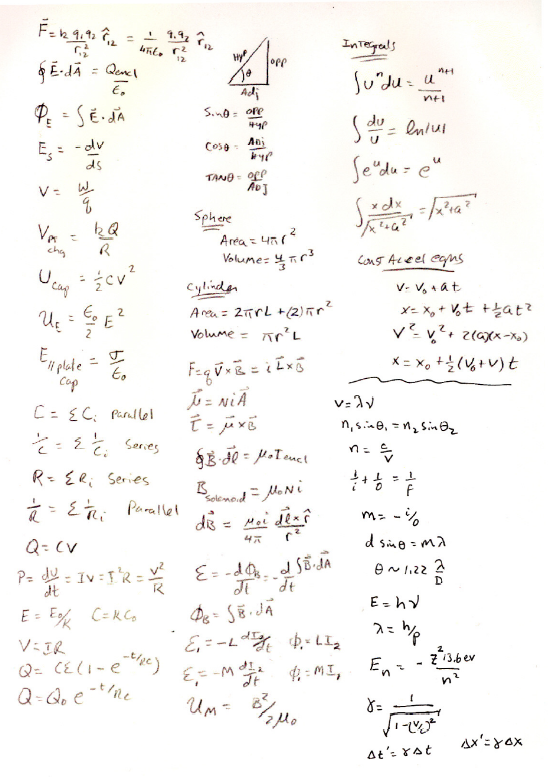 F⃗ = k q₁q₂/r₁₂² r̂₁₂ = 1/4πε₀ q₁q₂/r₁₂² r̂₁₂
∮E⃗·dA⃗ = Qencl/ε₀
Φ_E = ∫E⃗·dA⃗
E_s = -dV/ds
V = W/q
V_pt chg = kQ/R
U_cap = ½CV²
u_E = ε₀/2 E²
E_//plate cap = σ/ε₀
C = ΣCᵢ Parallel
1/C = Σ 1/Cᵢ Series
R = ΣRᵢ Series
1/R = Σ 1/Rᵢ Parallel
Q = CV
P = dU/dt = IV = I²R = V²/R
E = E₀/K C = KC₀
V = IR
Q = Cε(1-e^(-t/RC))
Q = Q₀e^(-t/RC)
Hyp
opp
θ
Adj
Sinθ = opp/Hyp
Cosθ = Adj/Hyp
TANθ = opp/ADJ
Sphere
Area = 4πr²
Volume = 4/3 πr³
Cylinder
Area = 2πrL + (2)πr²
Volume = πr²L
F = qV⃗×B⃗ = iL⃗×B⃗
μ⃗ = NiA⃗
τ⃗ = μ⃗×B⃗
∮B⃗·dl⃗ = μ₀Iencl
B_solenoid = μ₀Ni
dB⃗ = μ₀i/4π dl⃗×r̂/r²
ε = -dΦ_B/dt = -d/dt ∫B⃗·dA⃗
Φ_B = ∫B⃗·dA⃗
ε₁ = -L dI₂/dt φ₁ = LI₂
ε₁ = -M dI₂/dt φ₁ = MI₁
u_M = B²/2μ₀
Integrals
∫uⁿdu = uⁿ⁺¹/n+1
∫du/u = ln|u|
∫eᵘdu = eᵘ
∫x dx/√(x²+a²) = √(x²+a²)
Const Accel eqns
v = v₀ + at
x = x₀ + v₀t + ½at²
v² = v₀² + 2(a)(x-x₀)
x = x₀ + ½(v₀+v)t
v = λν
n₁sinθ₁ = n₂sinθ₂
n = c/v
1/i + 1/o = 1/f
m = -i/o
d sinθ = mλ
θ ~ 1.22 λ/D
E = hν
λ = h/p
E_n = -Z²13.6ev/n²
γ = 1/√(1-(v/c)²)
Δt' = γΔt Δx' = γΔx